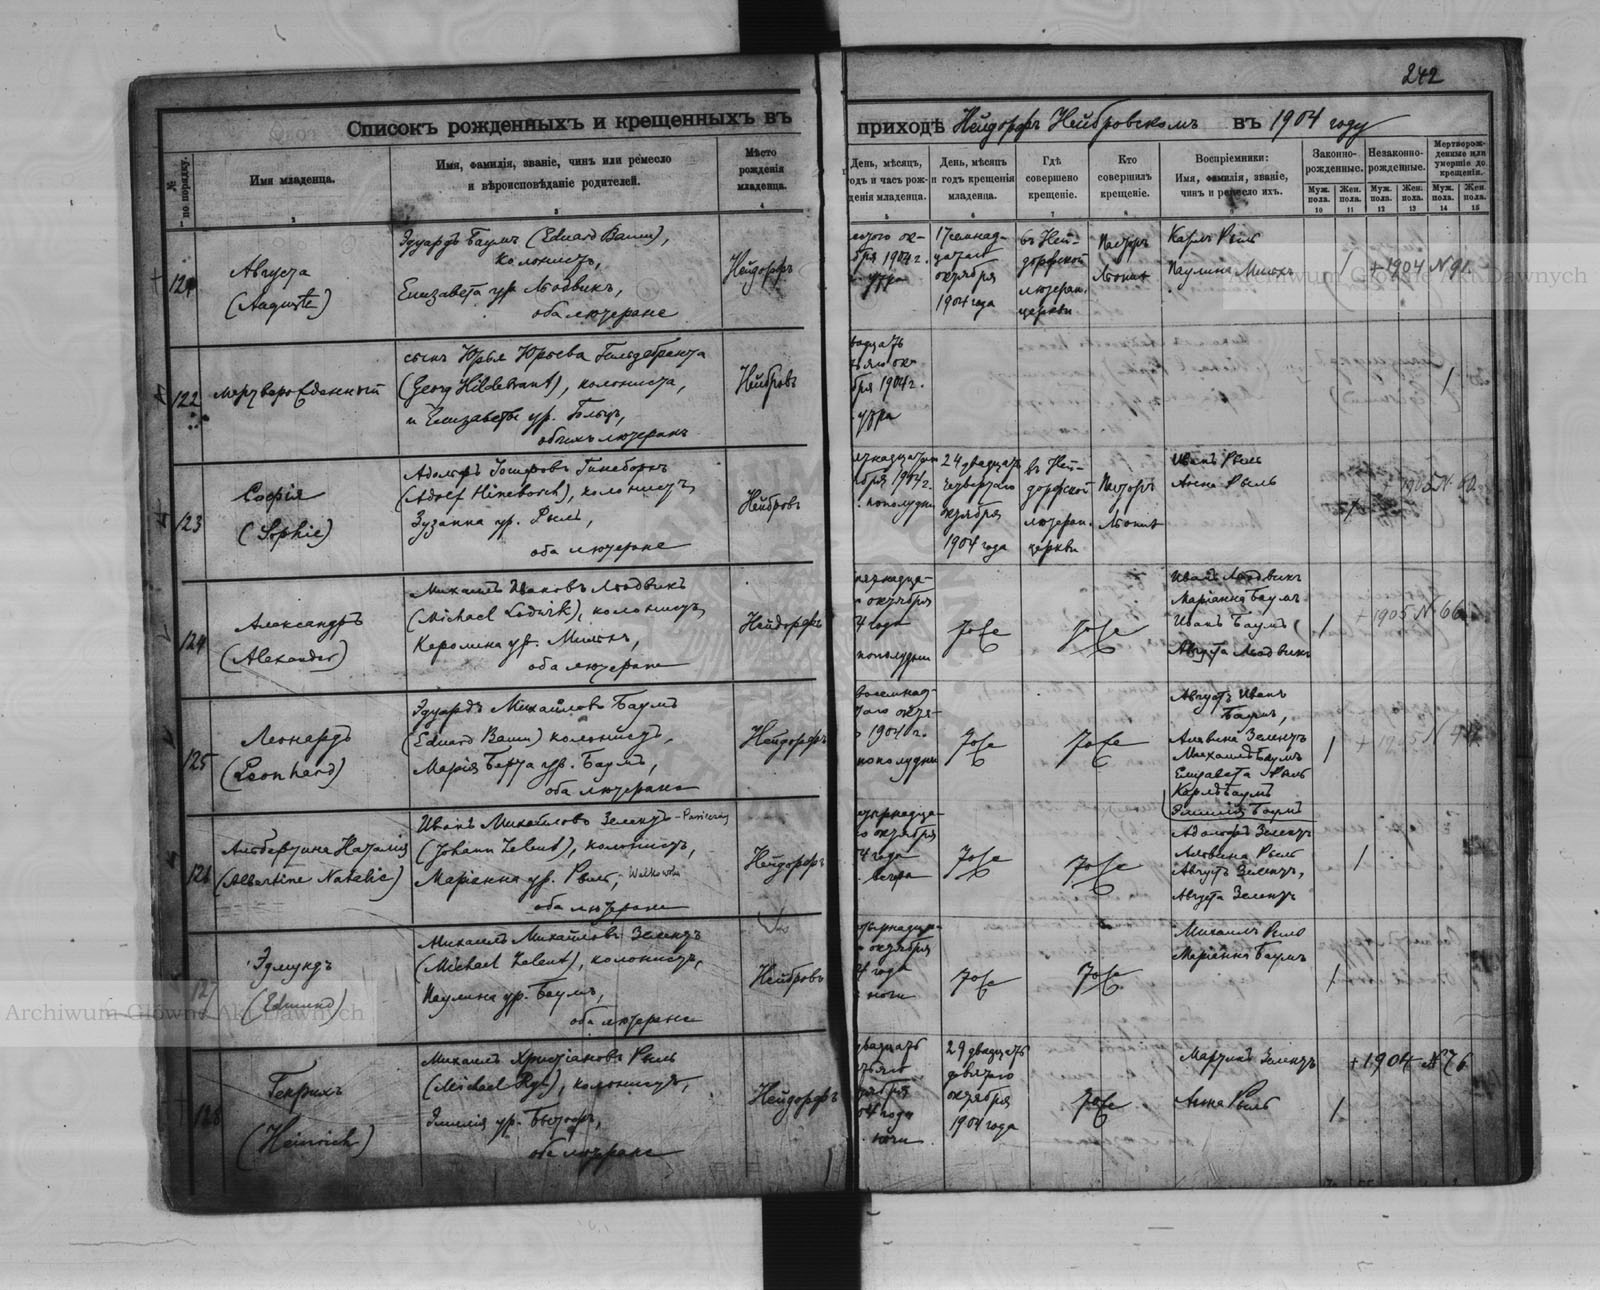 242
Списокъ рожденныхъ и крещенныхъ въ
приходѣ Нейдорфъ Нейбровскомъ въ 1904 году
№ по порядку.
Имя младенца.
Имя, фамилія, званіе, чинъ или ремесло
и вѣроисповѣданіе родителей.
Мѣсто
рожденія
младенца.
День, мѣсяцъ,
годъ и часъ рож-
денія младенца.
День, мѣсяцъ
и годъ крещенія
младенца.
Гдѣ
совершено
крещеніе.
Кто
совершилъ
крещеніе.
Воспріемники:
Имя, фамилія, званіе,
чинъ и ремесло ихъ.
Законно-
рожденные.
Незаконно-
рожденные.
Мертворож-
денные или
умершіе до
крещенія.
Муж. пола.
Жен. пола.
Муж. пола.
Жен. пола.
Муж. пола.
Жен. пола.
2 3 4 5 6 7 8 9 10 11 12 13 14 15
121
Августа
(Auguste)
Эдуардъ Баумъ (Eduard Baum),
колонистъ,
Елизавета ур. Людвикъ,
оба лютеране
Нейдорфъ
бря 1904 г.
утра
17 семнад-
цатаго
октября
1904 года
въ Ней-
дорфской
лютеран.
церкви
Пасторъ
Карлъ Рыль
Паулина
1
+ 1904 N 91
122
мертворожденный
сынъ Юрья Юрьева Гильдебранта
(Georg Hildebrant), колониста,
и Елизаветы ур. Больц,
обоихъ лютеранъ
Нейбровъ
бря 1904 г.
утра
1
123
Софія
(Sophie)
Адольфъ Гинеборхъ
(Adolf Hineborch), колонистъ,
Зузанна ур. Рыль,
оба лютеране
Нейбровъ
бря 1904 г.
пополудни
24 двадцать
четвертаго
октября
1904 года
въ Ней-
дорфской
лютеран.
церкви
Пасторъ
Иванъ Рыль
Анна Рыль
1
124
Александръ
(Alexander)
Михаилъ Ивановъ Людвикъ
(Michael Ludwik), колонистъ,
Каролина ур.
оба лютеране
Нейдорфъ
октября
4 года
пополудни
тоже
тоже
Иванъ Людвикъ
Маріанна Баумъ
Иванъ Баумъ
Августа Людвикъ
1
+ 1905 N 66
125
Леонардъ
(Leonhard)
Эдуардъ Михайловъ Баумъ
(Eduard Baum) колонистъ,
Марія Берта ур. Баумъ,
оба лютеране
Нейдорфъ
1904 г.
пополудни
тоже
тоже
Августъ Иванъ
Баумъ,
Альвина Зелентъ
Михаилъ Баумъ
Елизавета Рыль
Карлъ Баумъ
Эмилія Баумъ
1
126
Альбертина Наталія
(Albertine Natalie)
Иванъ Михайловъ Зелентъ
(Johann Zelent), колонистъ,
Маріанна ур. Рыль,
оба лютеране
Нейдорфъ
октября
4 года
вечера
тоже
тоже
Адольфъ Зелентъ
Альвина Рыль
Августъ Зелентъ,
Августа Зелентъ
1
127
Эдмундъ
(Edmund)
Михаилъ Михайловъ Зелентъ
(Michael Zelent), колонистъ,
Паулина ур. Баумъ,
оба лютеране
Нейбровъ
октября
4 года
ночи
тоже
тоже
Михаилъ Рыль
Маріанна Баумъ
1
128
Генрихъ
(Heinrich)
Михаилъ Христіановъ Рыль
(Michael Ryl), колонистъ,
Эмилія ур.
оба лютеране
Нейдорфъ
двадцать
октября
04 года
ночи
29 двадцать
девятаго
октября
1904 года
тоже
Мартинъ Зелентъ
Анна Рыль
1
+ 1904 N 76
Archiwum Główne Akt Dawnych
Archiwum Główne Akt Dawnych